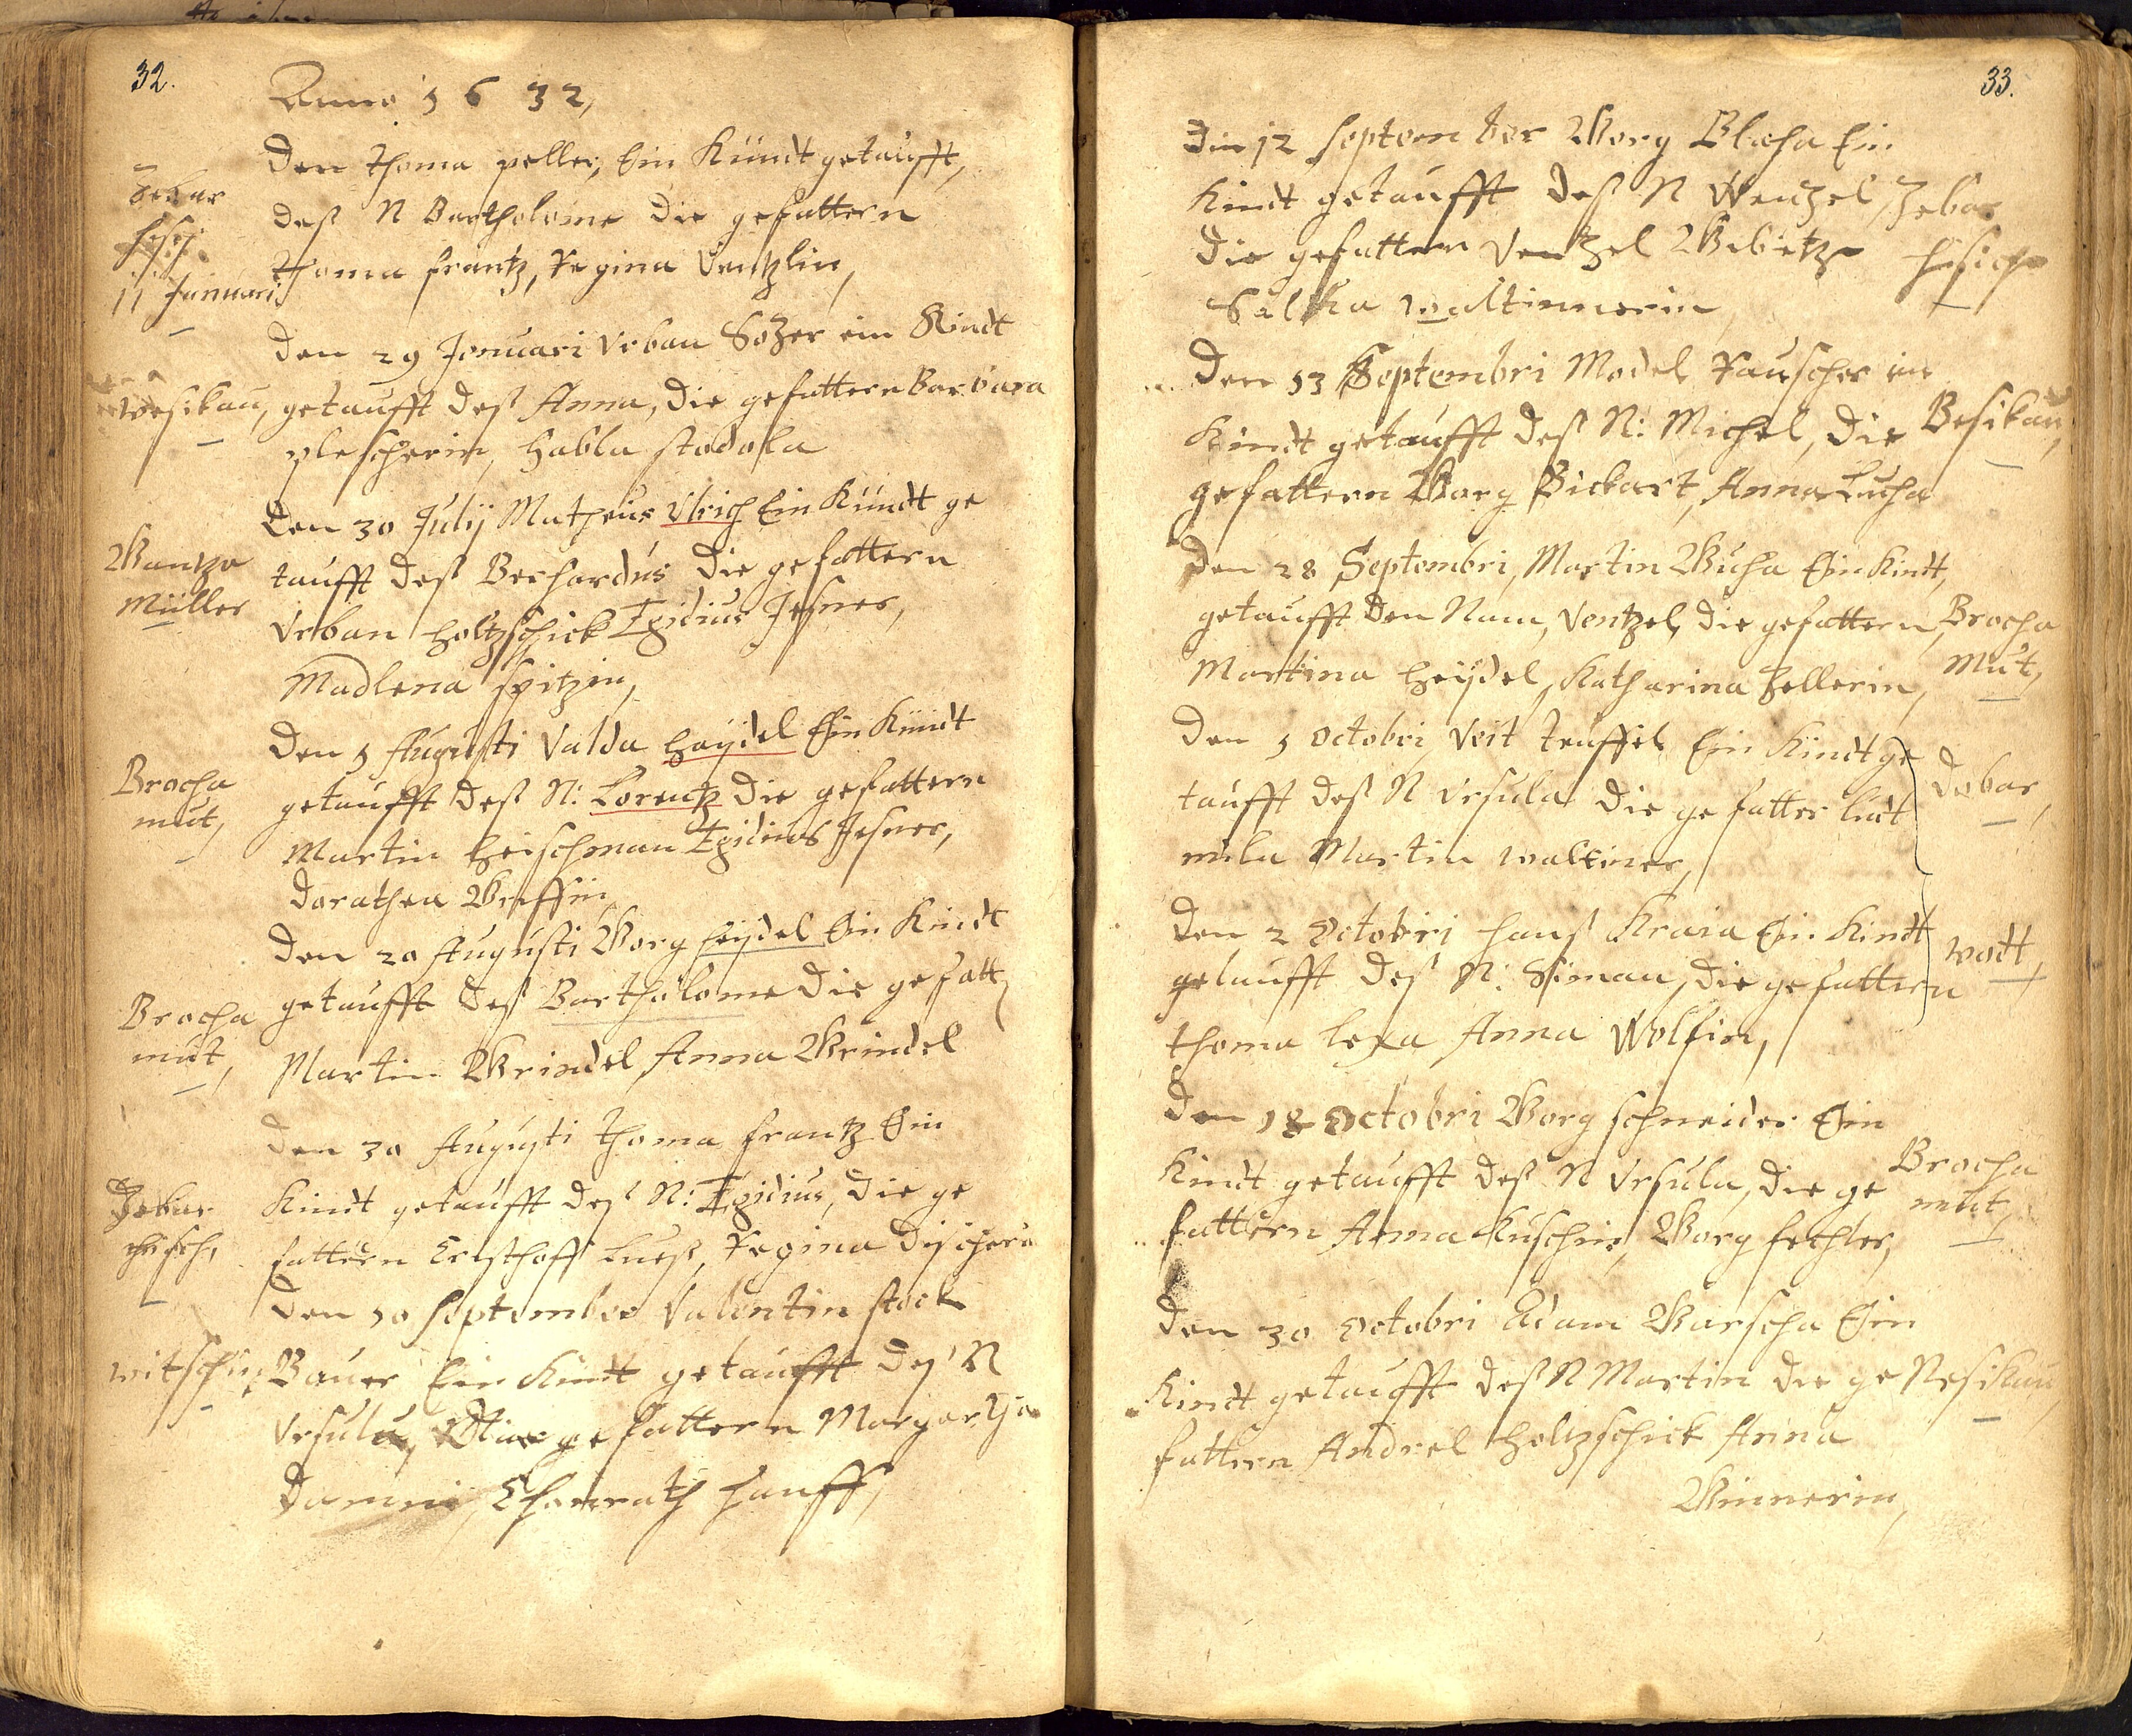 32.
Anno 1632,
Den Thoma peller, Ein Kündt getaufft,
deß N Bartholome die gefattern
Thoma frantz, Regina Ventzlin,
11 Januari
Den 29 Januari Urban Sozer ein Kindt
wesikau, getaufft deß Anna, die gefattern Barbara
plescherin, Habla stodola
Den 30 Julij Matheus Ulrich Ein Kündt ge
taufft deß Berhardus die gefattern
Urban Holtzschick Egidius Jesner,
Madlena Spitzin,
Müller
Den 5 Augusti Valda Haÿdel Ein Kündt
getaufft deß N: Lorentz die gefattern
Martin Heischman Egidius Jesner,
Dorathea
Brocha
mut,
Den 20 Augusti Worg Heÿdel Ein Kindt
getaufft deß Bartholome die gefatt
Martin Wrindel Anna Wrindel
Brocha
mut,
Den 30 Augusti Thoma frantz Ein
Kindt getaufft deß N: Egidius, die ge
fattern Cristhoff Regina
Den 10 September Valentin stock
Bauer Ein Kindt getaufft deß N
Ursula, Die gefattern Margartha
Hanff,
33.
Den 12 September Worg Blaha Ein
Kindt getaufft deß N Wentzel
die gefattern Ventzel
Salka waltinnerin
Den 13 Septembri Madel Rauscher ein
Kindt getaufft deß N: Michel, die
gefattern Worg Pickart, Anna Lucha
Besikau,
Den 28 Septembri, Martin Wucha Ein Kindt,
getaufft den Nam, Ventzel, die gefattern,
Martina Heÿdel, Katharina Zellerin,
Brocha
Mut,
Den 5 Octobri Veit Teuffel Ein Kindt ge
taufft deß N Ursula die gefatter liut
mila Martin waltiner,
Dobar,
Den 2 Octobri Hanß Kraia Ein Kindt
getaufft deß N: Siman, die gefattern
Thoma lexa Anna Wolfin,
wott,
Den 18 Octobri Worg schneider Ein
Kindt getaufft deß N Ursula, die ge
fattern Anna Kuschin, Worg fechler,
Brocha
mut,
Den 30 Octobri Adam Warscha Ein
Kindt getaufft deß N Martin die ge
fattern Andreel Holtzschick Anna
Winnerin,
Nesikau,